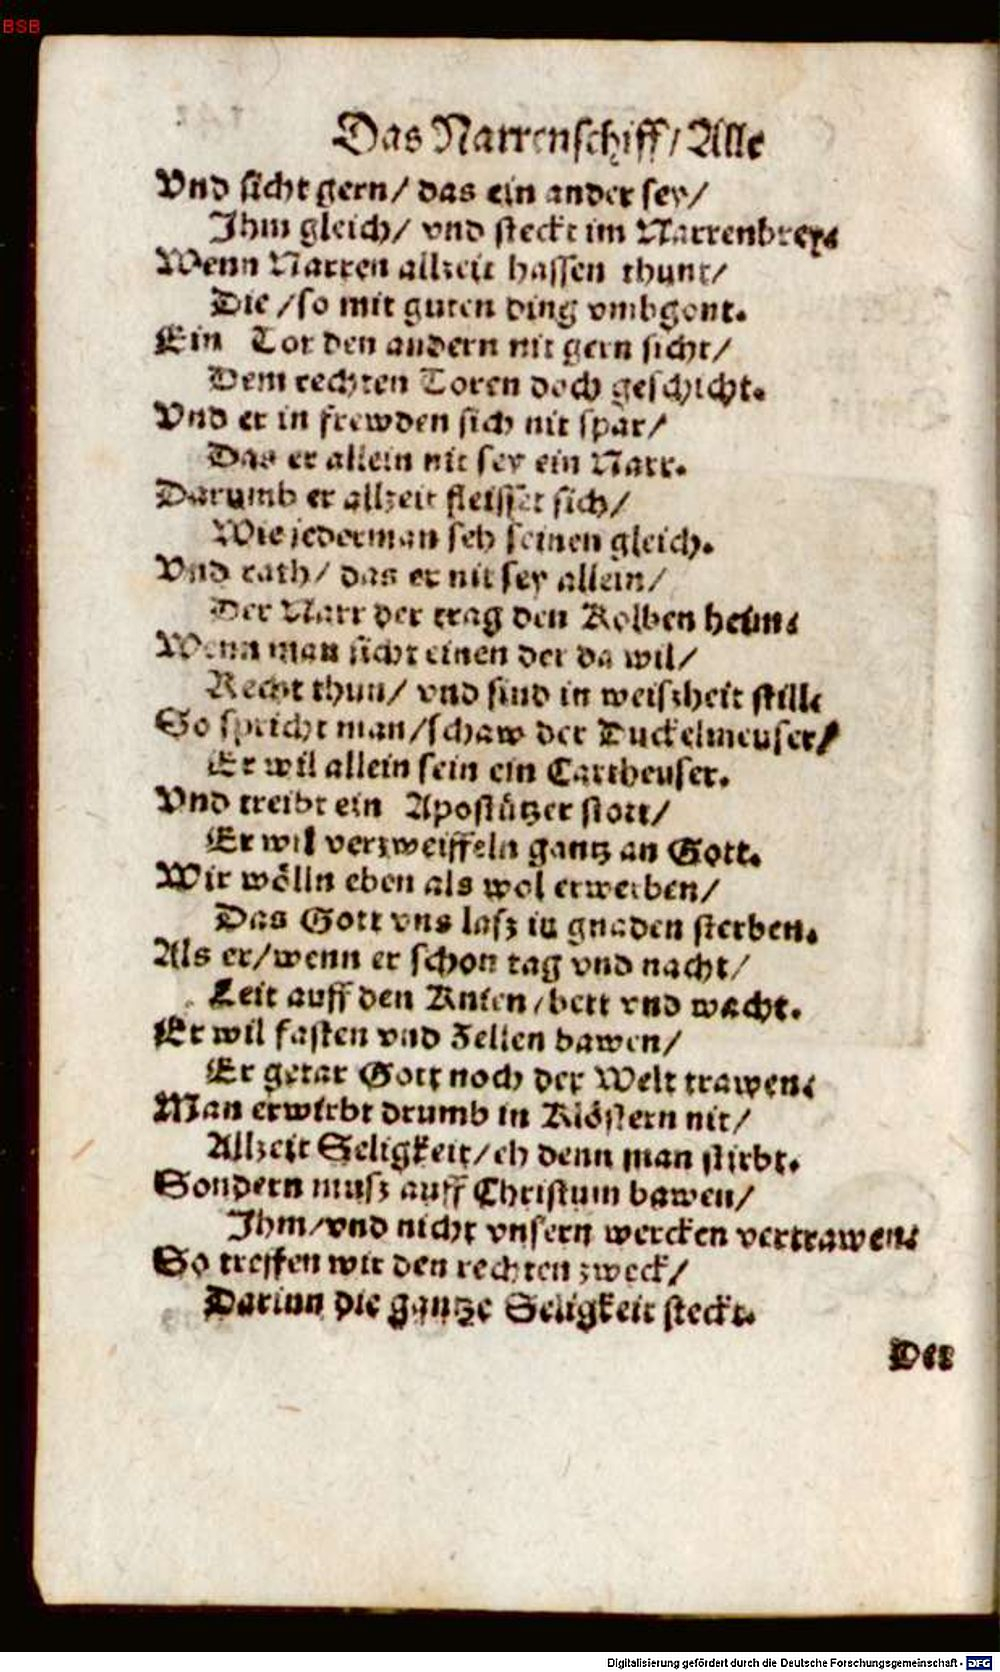 BSB
Das Narrenschiff/ Alle
Vnd sicht gern/ das ein ander sey/
Ihm gleich/ vnd steckt im Narrenbrey.
Wenn Narren allzeit hassen thunt/
Die /so mit guten ding vmbgont.
Ein Tor den andern nit gern sicht/
Dem rechten Toren doch geschicht.
Vnd er in frewden sich nit spar/
Das er allein nit sey ein Narr.
Darumb er allzeit fleisset sich/
Wie jederman seh seinen gleich.
Vnd rath/ das er nit sey allein/
Der Narr der trag den Kolben heim.
Wenn man sicht einen der da wil/
Recht thun/ vnd sind in weiszheit still
So spricht man/schaw der Duckelmeuser/
Er wil allein sein ein Cartheuser.
Vnd treibt ein Apostützer stott/
Er wil verzweiffeln gantz an Gott.
Wir wölln eben als wol erwerben/
Das Gott vns lasz in gnaden sterben.
Als er/wenn er schon tag vnd nacht/
Leit auff den Knien/bett vnd wacht.
Er wil fasten vnd Zellen bawen/
Er getar Gott noch der Welt trawen.
Man erwirbt drumb in Klöstern nit/
Allzeit Seligkeit/eh denn man stirbt.
Sondern musz auff Christum bawen/
Ihm/vnd nicht vnsern wercken vertrawen.
So treffen wir den rechten zweck/
Darinn die gantze Seligkeit steckt.
Der
Digitalisierung gefördert durch die Deutsche Forschungsgemeinschaft - DFG